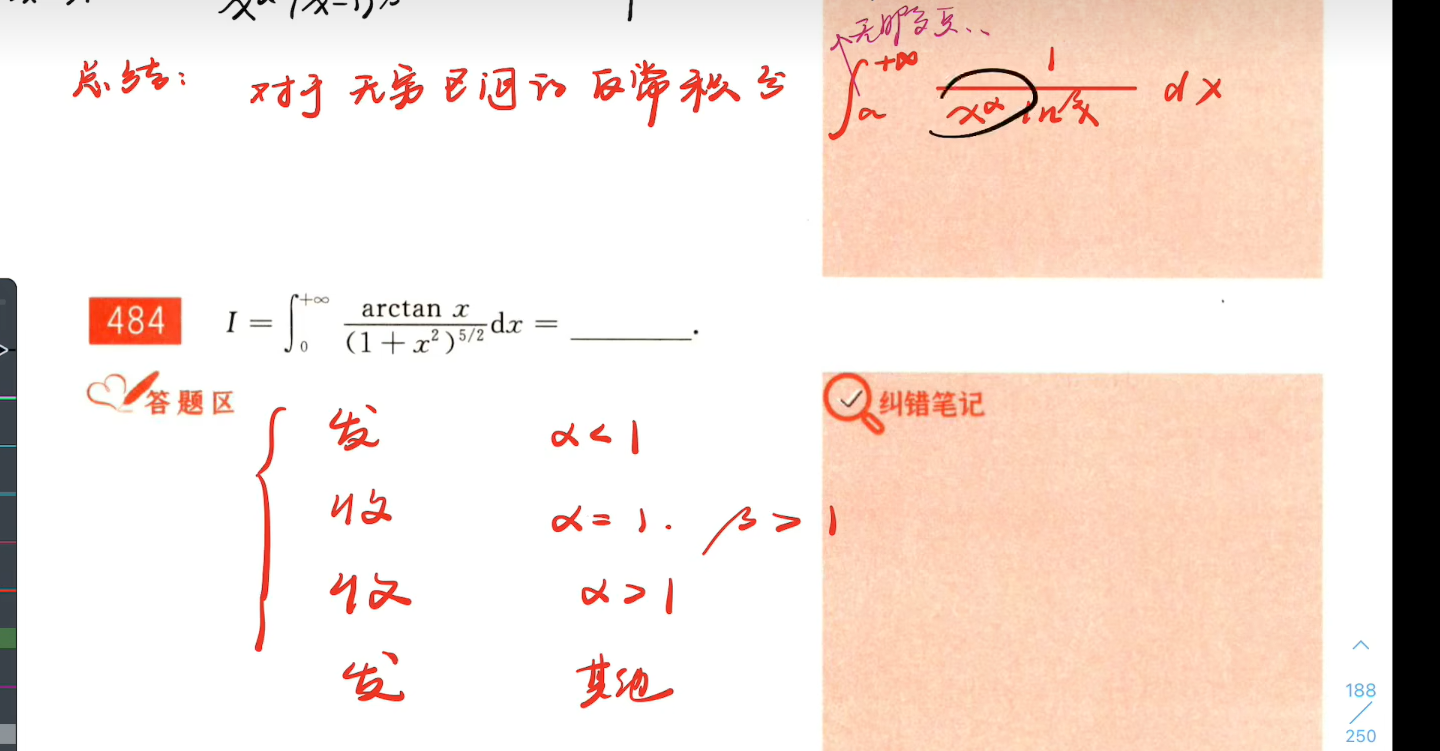 无暇点..
总结: 对于无穷区间的反常积分 ∫ₐ^{+∞} 1/(x^α ln^β x) dx
484 I = ∫₀^{+∞} arctan x/(1+x²)^{5/2} dx = ______.
答题区
纠错笔记
发 α<1
收 α=1. β>1
收 α>1
发 其他
188
/
250